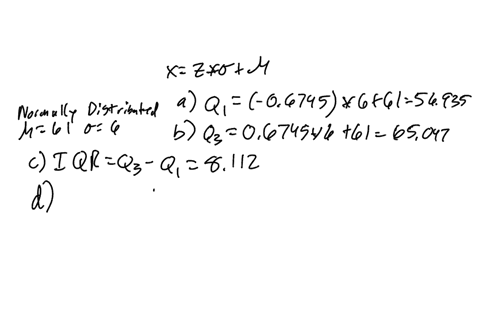 x = z*σ+μ
Normally Distributed
μ=61 σ=6
a) Q₁=(-0.6745)*6+61=56.935
b) Q₃=0.6745*6+61=65.047
c) IQR=Q₃-Q₁=8.112
d)